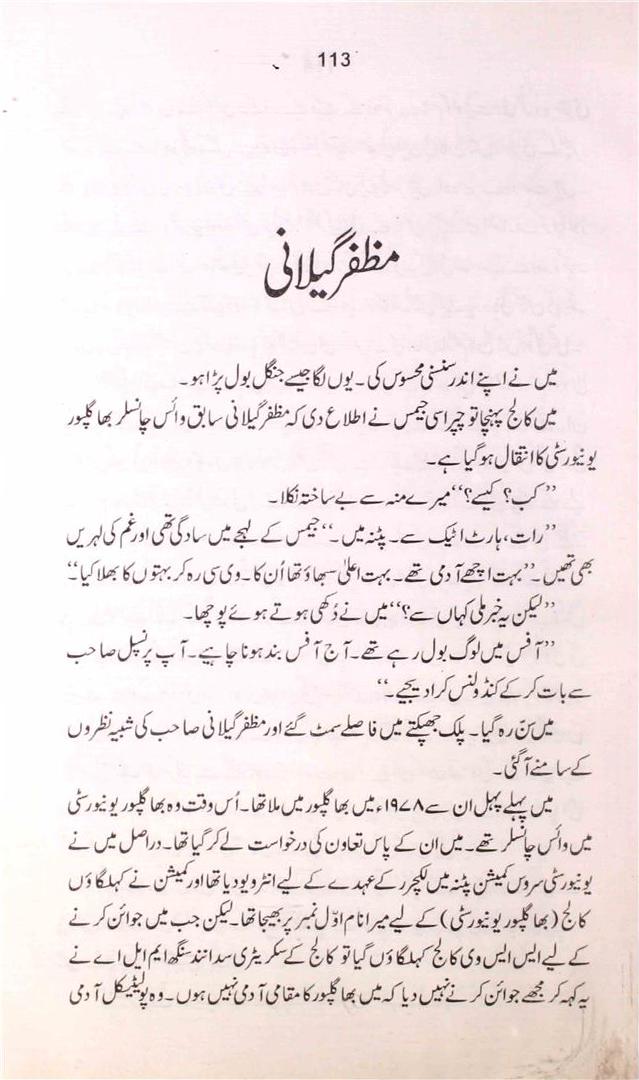 113
مظفر گیلانی
میں نے اپنے اندر سنسنی محسوس کی۔ یوں لگا جیسے جنگل بول پڑا ہو۔
میں کالج پہنچا تو چپراسی جیمس نے اطلاع دی کہ مظفر گیلانی سابق وائس چانسلر بھاگلپور
یونیورسٹی کا انتقال ہو گیا ہے۔
’’کب؟ کیسے؟‘‘ میرے منہ سے بے ساختہ نکلا۔
’’رات، ہارٹ اٹیک سے۔ پٹنہ میں۔‘‘ جیمس کے لہجے میں سادگی تھی اور غم کی لہریں
بھی تھیں۔ ’’بہت اچھے آدمی تھے۔ بہت اعلیٰ سبھاؤ تھا اُن کا۔ وی سی رہ کر بہتوں کا بھلا کیا‘‘
’’لیکن یہ خبر ملی کہاں سے؟‘‘ میں نے دُکھی ہوتے ہوئے پوچھا۔
’’آفس میں لوگ بول رہے تھے۔ آج آفس بند ہونا چاہیے۔ آپ پرنسپل صاحب
سے بات کر کے کنڈولنس کرا دیجیے۔‘‘
میں سنّ رہ گیا۔ پلک جھپکتے میں فاصلے سمٹ گئے اور مظفر گیلانی صاحب کی شبیہ نظروں
کے سامنے آگئی۔
میں پہلے پہل ان سے ۱۹۷۸ء میں بھاگلپور میں ملا تھا۔ اُس وقت وہ بھاگلپور یونیورسٹی
میں وائس چانسلر تھے۔ میں ان کے پاس تعاون کی درخواست لے کر گیا تھا۔ دراصل میں نے
یونیورسٹی سروس کمیشن پٹنہ میں لکچرر کے عہدے کے لیے انٹرویو دیا تھا اور کمیشن نے کہلگاؤں
کالج (بھاگلپور یونیورسٹی) کے لیے میرا نام اوّل نمبر پر بھیجا تھا۔ لیکن جب میں جوائن کرنے
کے لیے ایس ایس وی کالج کہلگاؤں گیا تو کالج کے سکریٹری سدانند سنگھ ایم ایل اے نے
یہ کہہ کر مجھے جوائن کرنے نہیں دیا کہ میں بھاگلپور کا مقامی آدمی نہیں ہوں۔ وہ پولیٹیکل آدمی